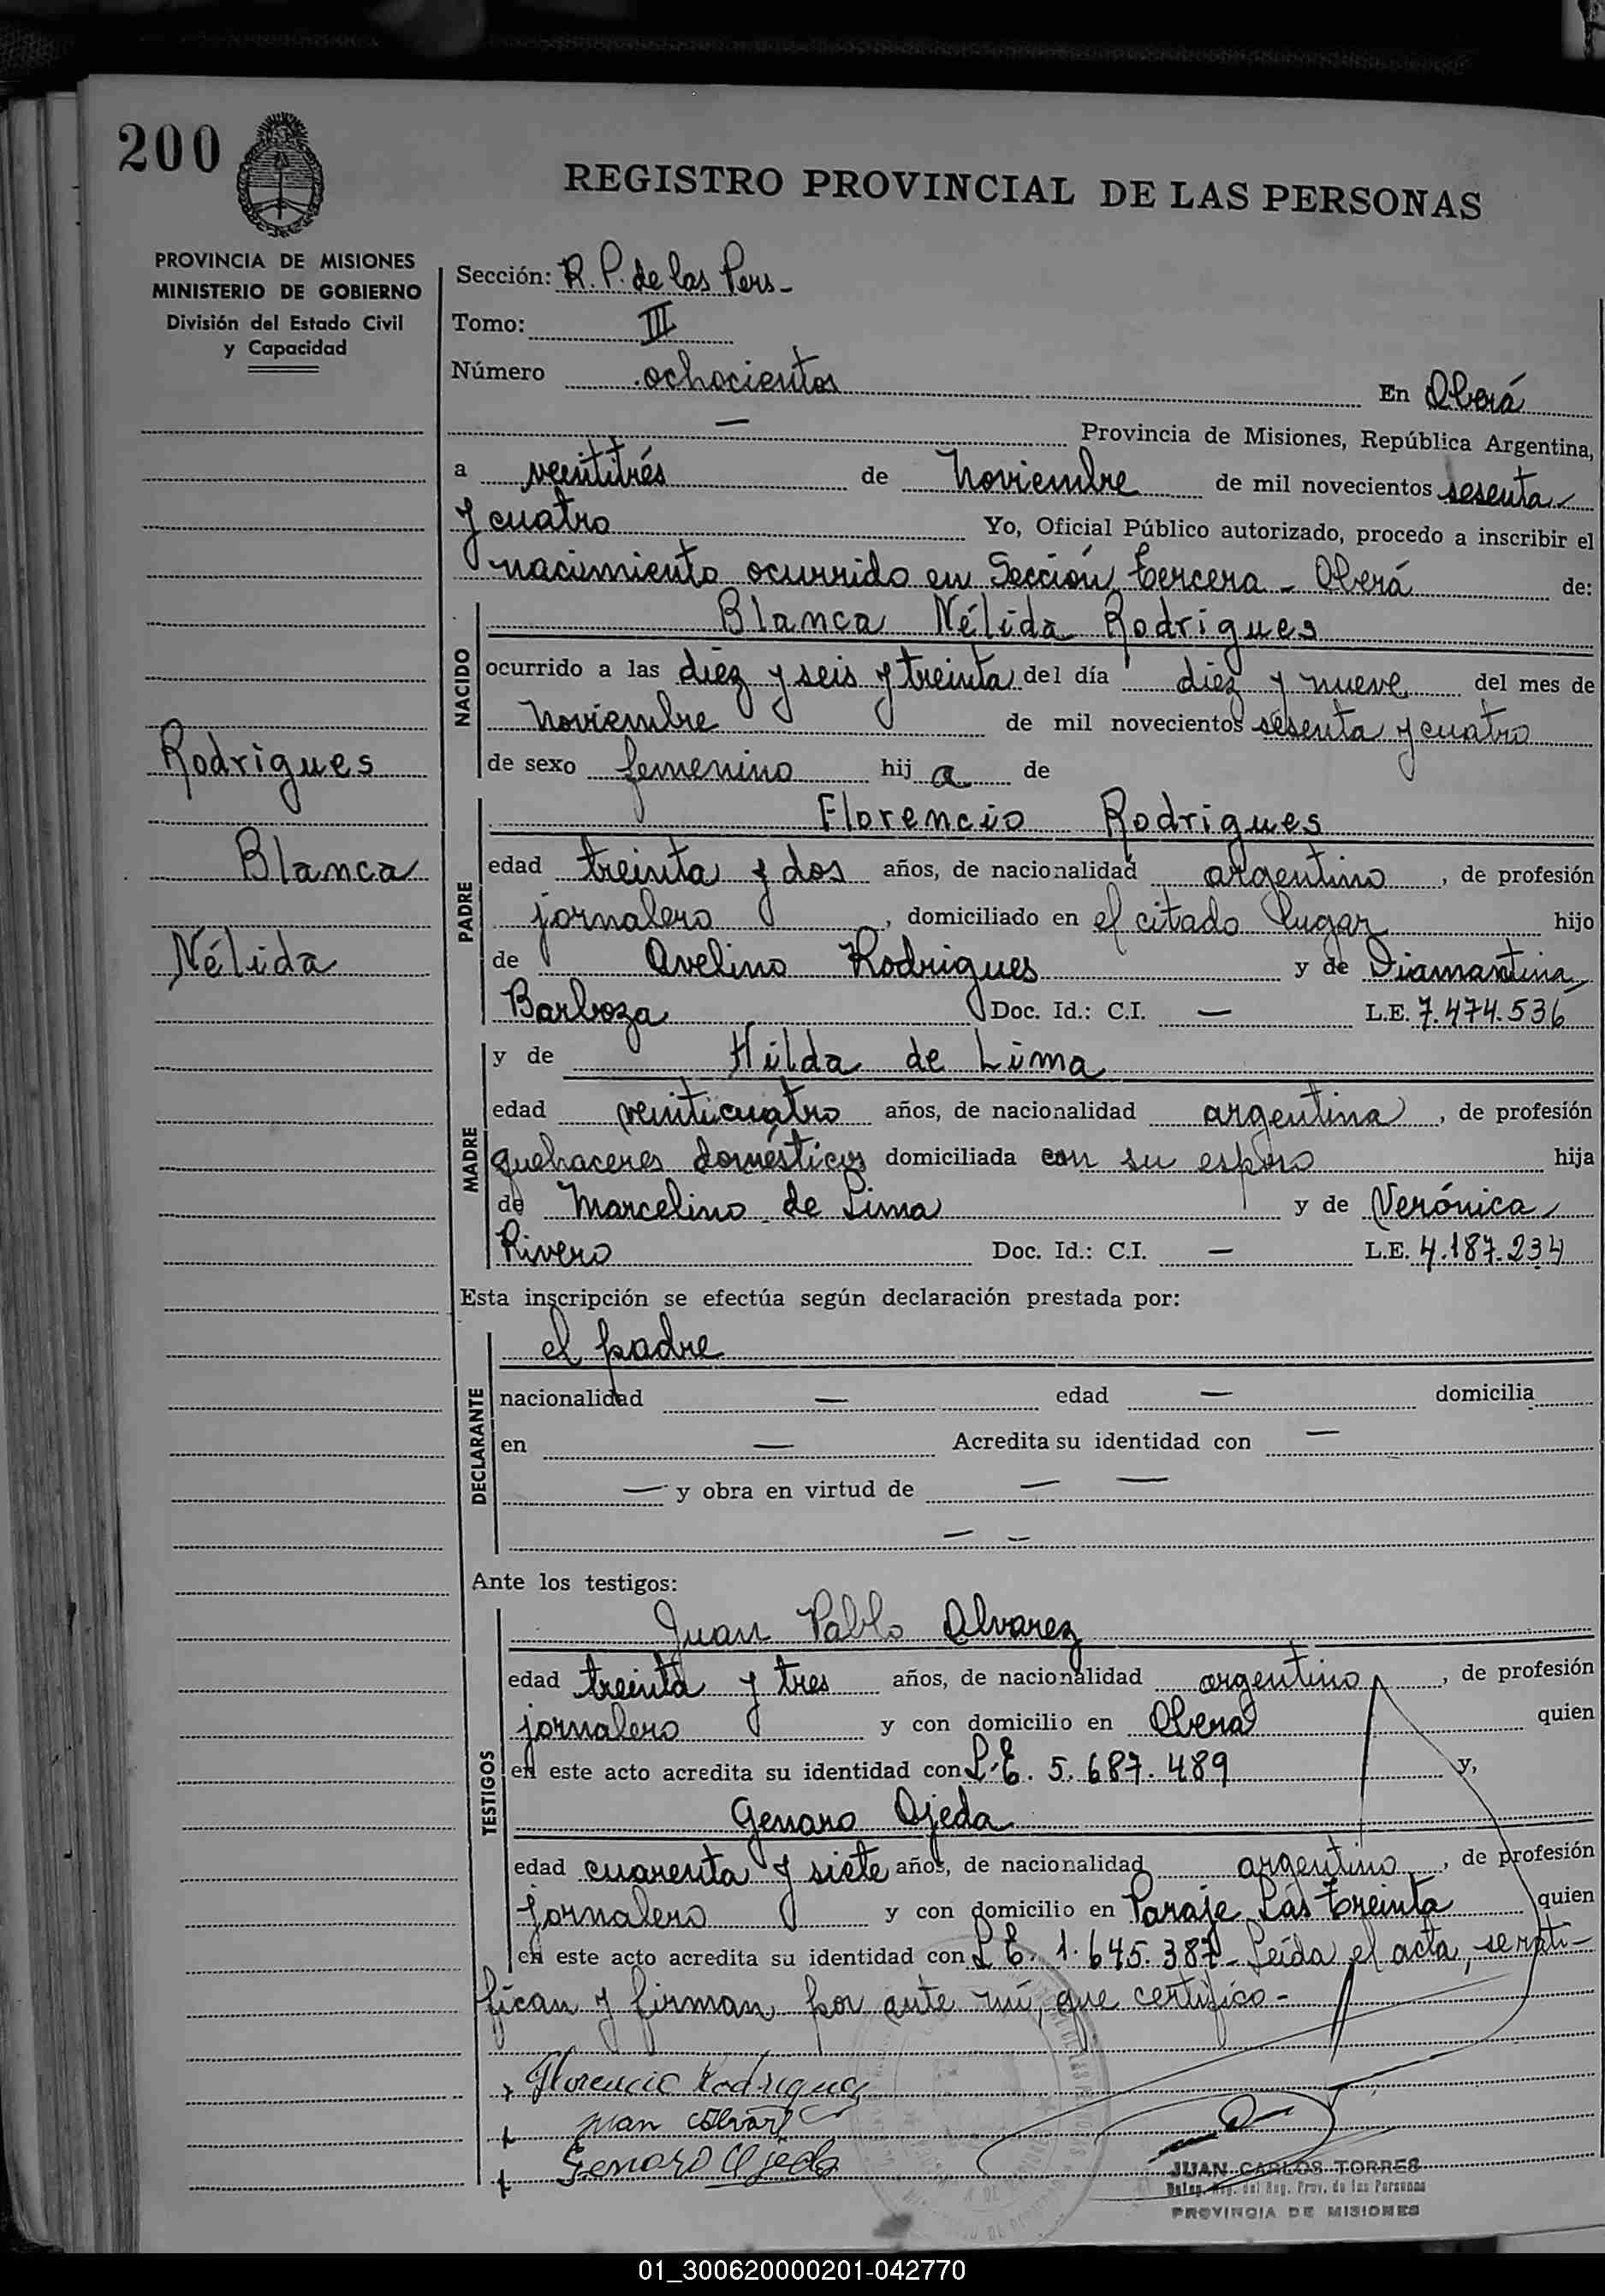 200
REGISTRO PROVINCIAL DE LAS PERSONAS
PROVINCIA DE MISIONES
MINISTERIO DE GOBIERNO
División del Estado Civil
y Capacidad
Rodrigues
Blanca
Nélida
Sección: R. P. de las Pers-
Tomo: III
Número ochocientos En Oberá
— Provincia de Misiones, República Argentina,
a veintitrés de Noviembre de mil novecientos sesenta
y cuatro Yo, Oficial Público autorizado, procedo a inscribir el
nacimiento ocurrido en Sección Tercera - Oberá de:
NACIDO
Blanca Nélida Rodrigues
ocurrido a las diez y seis y treinta del día diez y nueve del mes de
Noviembre de mil novecientos sesenta y cuatro
de sexo femenino hij a de
PADRE
Florencio Rodrigues
edad treinta y dos años, de nacionalidad argentino, de profesión
jornalero, domiciliado en el citado lugar hijo
de Avelino Rodrigues y de Diamantina
Barboza Doc. Id.: C.I. — L.E. 7.474.536
MADRE
y de Hilda de Lima
edad veinticuatro años, de nacionalidad argentina, de profesión
quehaceres domésticos domiciliada con su esposo hija
de Marcelino de Lima y de Verónica
Rivero Doc. Id.: C.I. — L.E. 4.187.234
Esta inscripción se efectúa según declaración prestada por:
DECLARANTE
el padre
nacionalidad — edad — domicilia
en — Acredita su identidad con —
— y obra en virtud de — —
— —
Ante los testigos:
TESTIGOS
Juan Pablo Alvarez
edad treinta y tres años, de nacionalidad argentino, de profesión
jornalero y con domicilio en Oberá quien
en este acto acredita su identidad con L.E. 5.687.489 y,
Genaro Ojeda
edad cuarenta y siete años, de nacionalidad argentino, de profesión
jornalero y con domicilio en Paraje Las Treinta quien
en este acto acredita su identidad con L.E. 1.645.387- Leída el acta, se rati-
fican y firman por ante mí, que certifico-
Florencio Rodrigues
Juan Alvarez
Genaro Ojeda
JUAN CARLOS TORRES
del Reg. Prov. de las Personas
PROVINCIA DE MISIONES
01_300620000201-042770